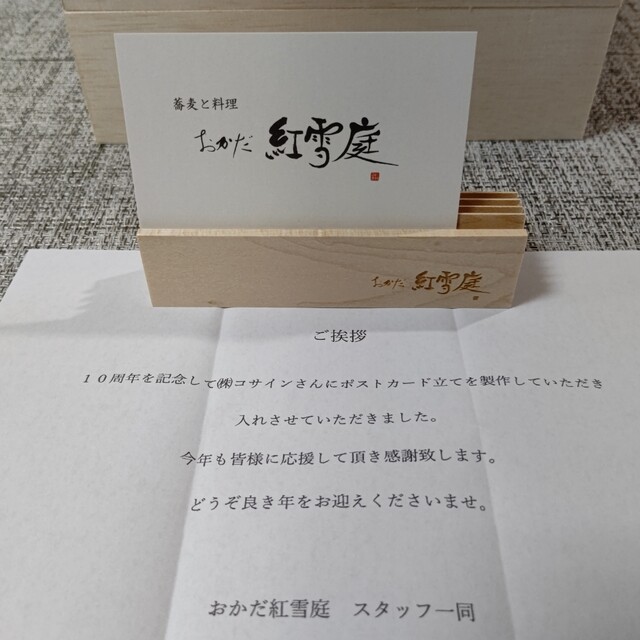 蕎麦と料理
おかだ 紅雪庭
おかだ 紅雪庭
ご挨拶
１０周年を記念して㈱コサインさんにポストカード立てを製作していただき
入れさせていただきました。
今年も皆様に応援して頂き感謝致します。
どうぞ良き年をお迎えくださいませ。
おかだ紅雪庭　スタッフ一同